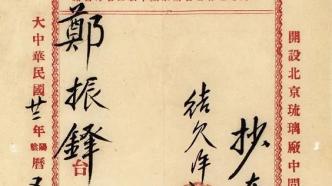 開設北京琉璃廠中間
抄
結欠洋
鄭振鐸
台
大中華民國廿三年陰陽曆